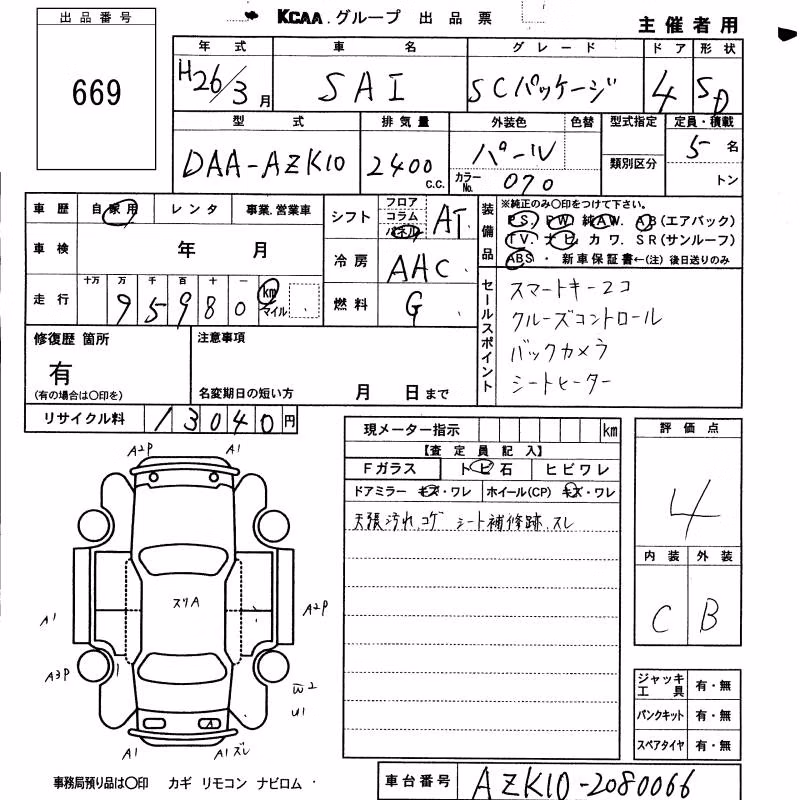 KCAA.グループ 出品票
主催者用
出品番号
669
年式 車名 グレード ドア 形状
H26/3月 SAI SCパッケージ 4 SD
型式 排気量 外装色 色替 型式指定 定員・積載
DAA-AZK10 2400 c.c. パール 類別区分 5名
カラーNo. 070 トン
車歴 自家用 レンタ 事業.営業車
シフト フロア コラム パネル AT
装備品 ※純正のみ○印をつけて下さい。
PS. PW. 純AW. AB(エアバック)
TV. ナビ. カワ. SR(サンルーフ)
ABS ・ 新車保証書←(注) 後日送りのみ
車検 年 月
冷房 AAC
走行 十万 万 千 百 十 一
9 5 9 8 0 km マイル
燃料 G
セールスポイント
スマートキー2コ
クルーズコントロール
バックカメラ
シートヒーター
修復歴 箇所
有
(有の場合は○印を)
注意事項
名変期日の短い方 月 日まで
リサイクル料 13040円
現メーター指示 km
【査定員記入】
Fガラス トビ石 ヒビワレ
ドアミラー キズ・ワレ ホイール(CP) キズ・ワレ
天張汚れ コゲ シート補修跡.スレ
評価点
4
内装 外装
C B
A2P A1
スリA
A1 A2P
A3P
W2
U1
A
A1 A1ズレ
ジャッキ工具 有・無
パンクキット 有・無
スペアタイヤ 有・無
事務局預り品は○印 カギ リモコン ナビロム
車台番号 AZK10-2080066